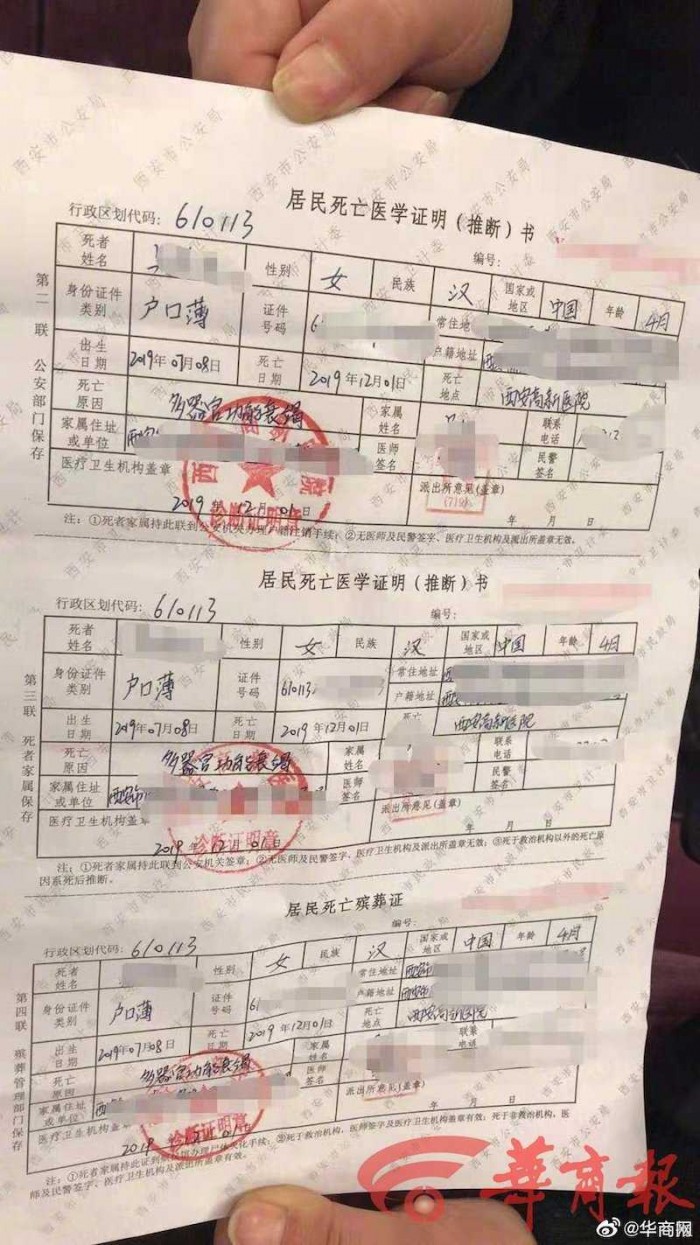 居民死亡医学证明(推断)书
行政区划代码: 610113 编号:
死者姓名 性别 女 民族 汉 国家或地区 中国 年龄 4月
身份证件类别 户口薄 证件号码 6 常住地址
户籍地址 西
出生日期 2019年07月08日 死亡日期 2019年12月01日 死亡地点 西安高新医院
死亡原因 多器官功能衰竭 家属姓名 联系电话
家属住址或单位 西安 医师签名 民警签名
医疗卫生机构盖章 派出所意见(盖章)
2019年12月01日 年 月 日
诊断证明章
(719)
注:①死者家属持此联到公安机关办理户籍注销手续;②无医师及民警签字、医疗卫生机构及派出所盖章无效。
第二联 公安部门保存
居民死亡医学证明(推断)书
行政区划代码: 610113 编号:
死者姓名 性别 女 民族 汉 国家或地区 中国 年龄 4月
身份证件类别 户口薄 证件号码 610113 常住地址
户籍地址
出生日期 2019年07月08日 死亡日期 2019年12月01日 死亡 西安高新医院
死亡原因 多器官功能衰竭 家属 联系电话
家属住址或单位 西安市 医师签名 民警签名
医疗卫生机构盖 派出所意见(盖章)
2019年12月01日 年 月 日
诊断证明章
注:①死者家属持此联到公安机关签章;②无医师及民警签字,医疗卫生机构及派出所盖章无效;③死于救治机构以外的死亡原因系死后推断。
第三联 死者家属保存
居民死亡殡葬证
行政区划代码: 610113 编号:
死者姓名 性别 女 民族 汉 国家或地区 中国 年龄 4月
身份证件类别 户口薄 证件号码 61 常住地址 西安市
户籍地址 西安市
出生日期 2019年07月08日 死亡日期 2019年12月01日 死亡地点 西安高新医院
死亡原因 多器官功能衰竭 家属姓名 联系电话
家属住址或单位 西 医师签名 民警签名
医疗卫生机构盖 派出所意见(盖章)
2019 年 月 日
诊断证明章
注:①死者家属持此证到 办理尸体火化手续;②死于救治机构,医师签字及医疗卫生机构盖章有效;死于非救治机构,医师及民警签字,医疗卫生机构及派出所盖章有效。
第四联 殡葬管理部门保存
西安市公安局
西安市卫计委
西安市民政局
華商報
@华商网